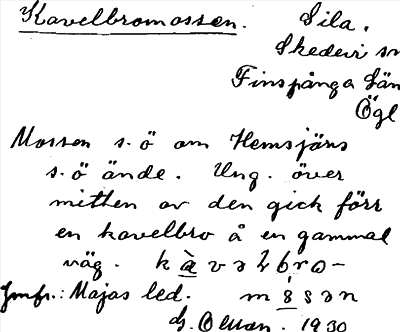 Kavelbromossen. Sila.
Skedevi sn
Finspånga län
Ögl
Mossen s.ö om Hemsjöns
s.ö ände. Ung. över
mitten av den gick förr
en kavelbro å en gammal
väg. kàvəɫbro-
Jmfr.: Majas led. mʻåsən
1930